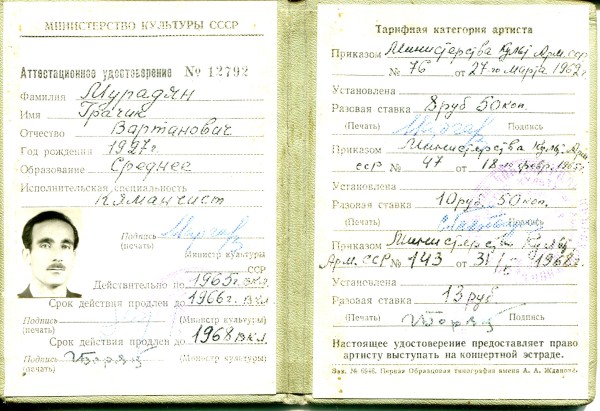 МИНИСТЕРСТВО КУЛЬТУРЫ СССР
Аттестационное удостоверение № 12792
Фамилия Мурадян
Имя Грачик
Отчество Вартанович
Год рождения 1927г
Образование Среднее
Исполнительская специальность
Кяманчист
Подпись
(печать)
Министр культуры
ССР
Действительно по 1965г. вкл.
Срок действия продлен до 1966г. вкл
Подпись (Министр культуры)
(печать)
Срок действия продлен до 1968 вкл.
Подпись (Министр культуры)
(печать)
Тарифная категория артиста
Приказом Министерства Культ Арм. ССР
№ 76 от 27го марта 1962г
Установлена
Разовая ставка 8 руб 50 коп.
(Печать) Подпись
Приказом Министерства Культ. Арм
ССР № 47 от 18го февр. 1965г
Установлена
Разовая ставка 10 руб. 50 коп.
(Печать) Подпись
Приказом Министерство Культ.
Арм. ССР № 143 от 1968г.
Установлена
Разовая ставка 13 руб
(Печать) Подпись
Настоящее удостоверение предоставляет право
артисту выступать на концертной эстраде.
Зак. № 6546. Первая Образцовая типография имени А. А. Жданова.